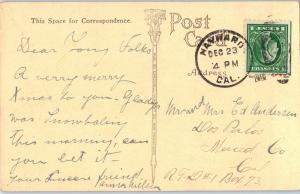 This Space for Correspondence.
Post
Card
Dear Tony Folks
A verry merry
Xmas to you. Gladys
was Snowbaling
This morning, can
you bet it –
Your Sincere friend
HAYWARD
DEC 23
4 PM
CAL.
Address
Mr and Mrs Ed Andersen
Dos Palos
Merced Co.
Cal.
R.F.D #1 Box 73